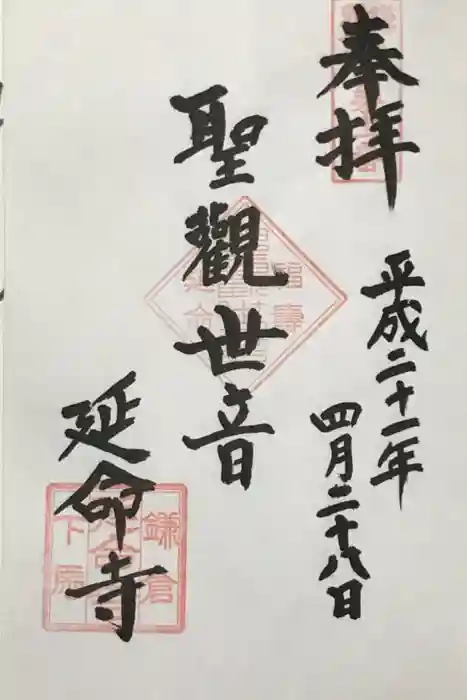 奉拝
平成二十一年
四月二十八日
聖觀世音
延命寺
鎌倉
下馬